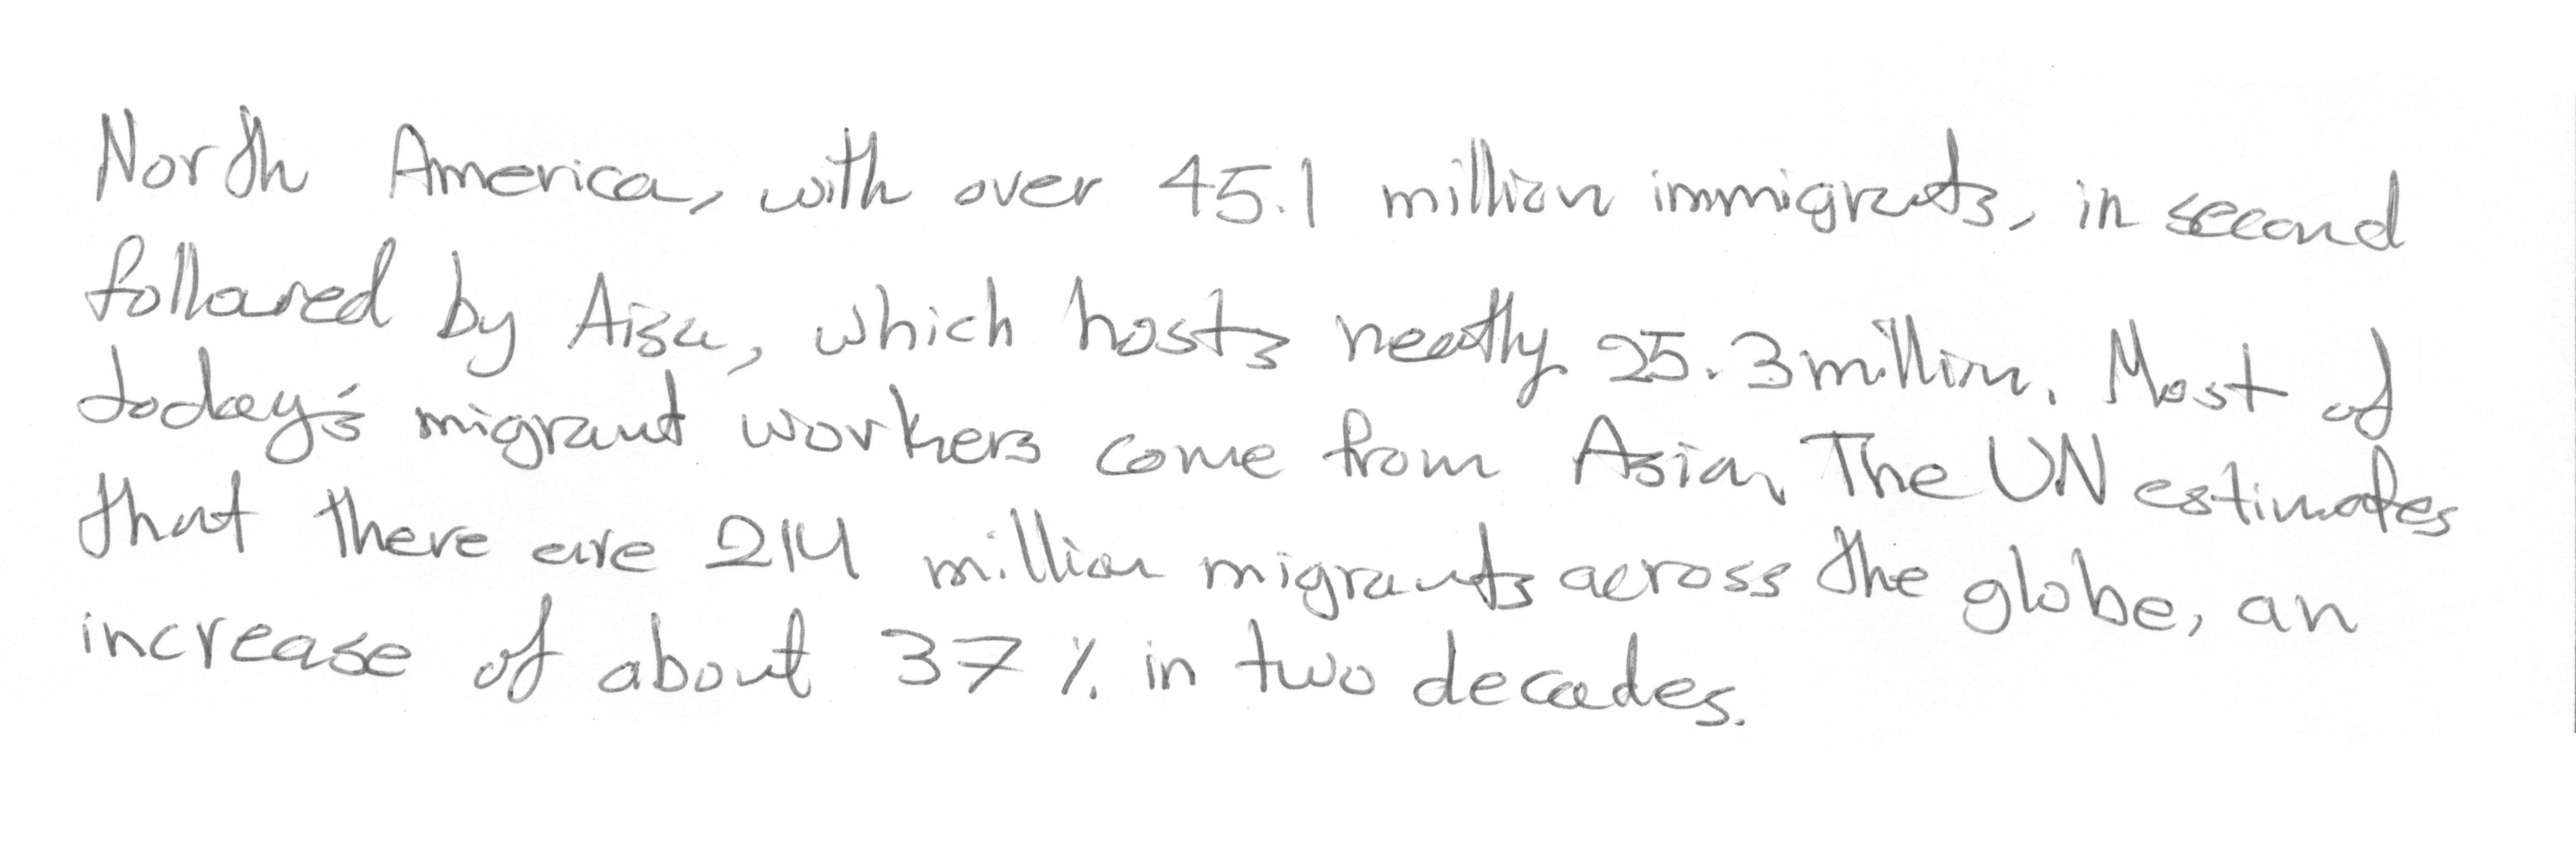 North America, with over 45.1 million immigrats, in second
followed by Aisa, which hosts neatly 25.3 million. Most of
today's migrant workers come from Asian The UN estimates
that there are 214 million migrants across the globe, an
increase of about 37 % in two decades.